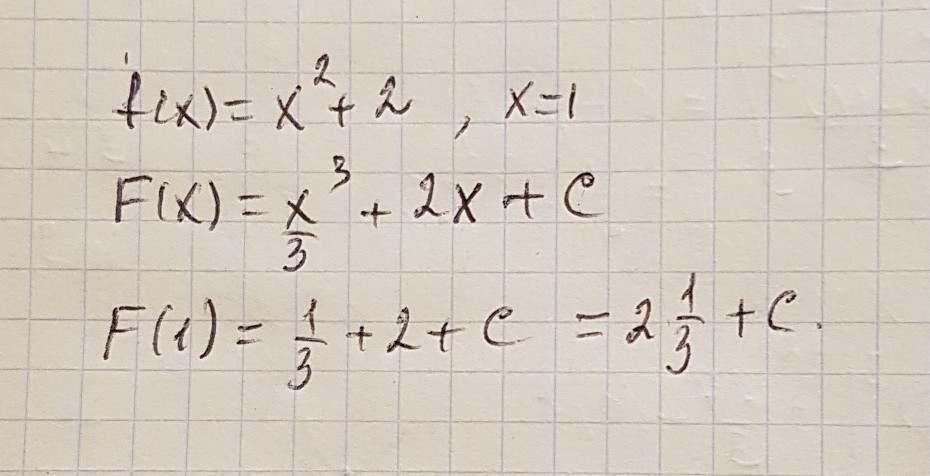 f(x) = x² + 2 , x=1
F(x) = x³/3 + 2x + C
F(1) = 1/3 + 2 + C = 2 1/3 + C.